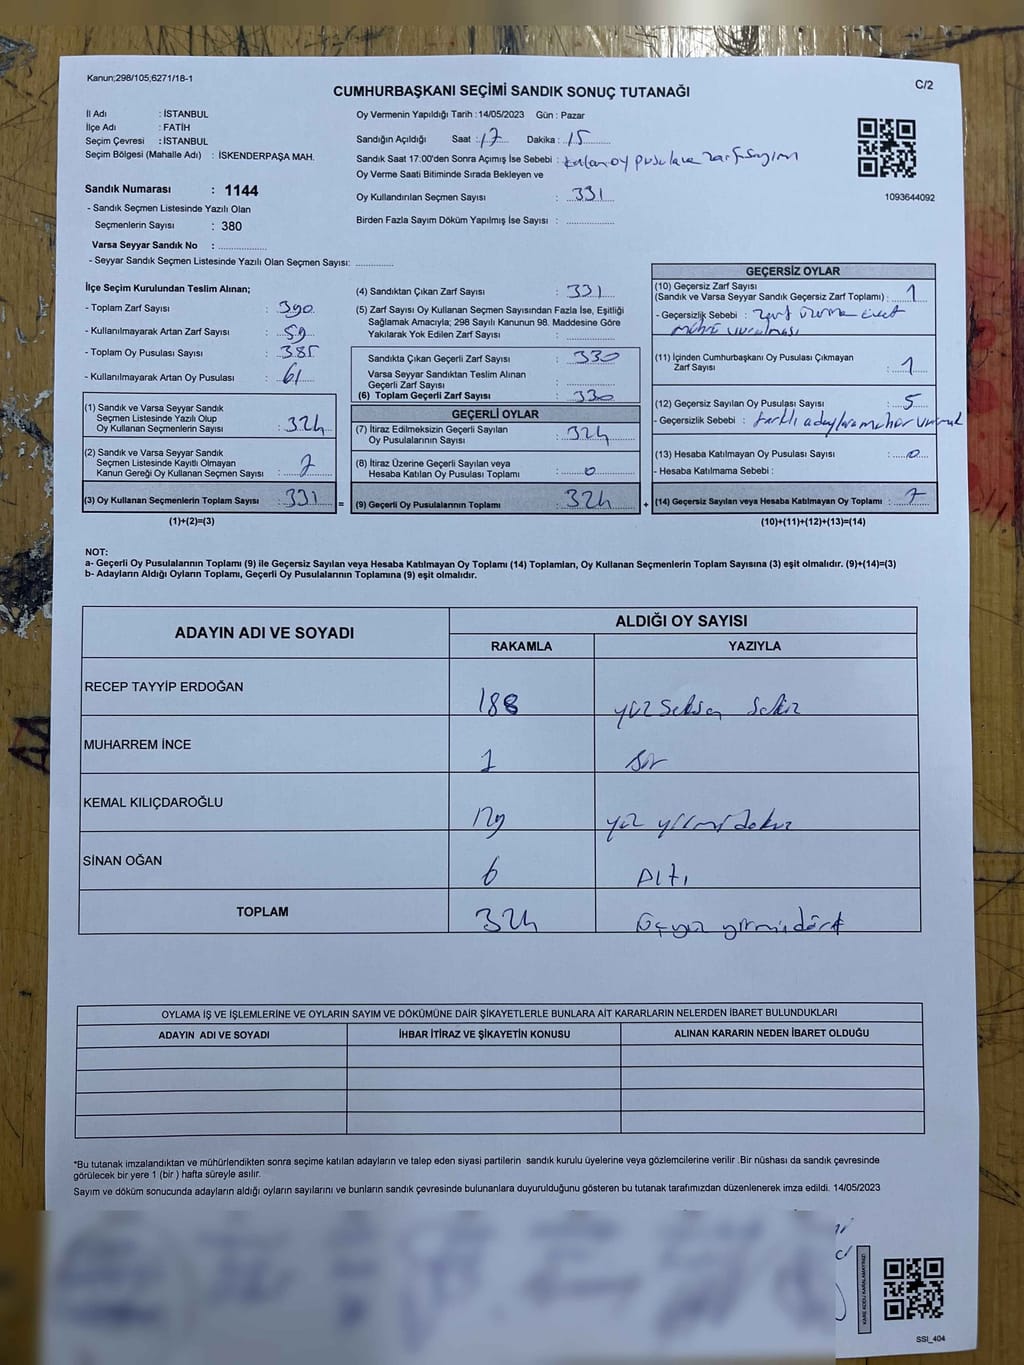 Kanun;298/105;6271/18-1
C/2
CUMHURBAŞKANI SEÇİMİ SANDIK SONUÇ TUTANAĞI
İl Adı : İSTANBUL
İlçe Adı : FATİH
Seçim Çevresi : İSTANBUL
Seçim Bölgesi (Mahalle Adı) : İSKENDERPAŞA MAH.
Sandık Numarası : 1144
- Sandık Seçmen Listesinde Yazılı Olan
Seçmenlerin Sayısı : 380
Varsa Seyyar Sandık No :
- Seyyar Sandık Seçmen Listesinde Yazılı Olan Seçmen Sayısı:
Oy Vermenin Yapıldığı Tarih : 14/05/2023 Gün : Pazar
Sandığın Açıldığı Saat : 17 Dakika : 15
Sandık Saat 17:00'den Sonra Açımış İse Sebebi : kalan oy pusulava zarf sayımı
Oy Verme Saati Bitiminde Sırada Bekleyen ve
Oy Kullandırılan Seçmen Sayısı : 331
Birden Fazla Sayım Döküm Yapılmış İse Sayısı :
1093644092
İlçe Seçim Kurulundan Teslim Alınan;
- Toplam Zarf Sayısı : 390
- Kullanılmayarak Artan Zarf Sayısı : 59
- Toplam Oy Pusulası Sayısı : 385
- Kullanılmayarak Artan Oy Pusulası : 61
(1) Sandık ve Varsa Seyyar Sandık
Seçmen Listesinde Yazılı Olup
Oy Kullanan Seçmenlerin Sayısı : 324
(2) Sandık ve Varsa Seyyar Sandık
Seçmen Listesinde Kayıtlı Olmayan
Kanun Gereği Oy Kullanan Seçmen Sayısı : 7
(3) Oy Kullanan Seçmenlerin Toplam Sayısı : 331 =
(1)+(2)=(3)
(4) Sandıktan Çıkan Zarf Sayısı : 331
(5) Zarf Sayısı Oy Kullanan Seçmen Sayısından Fazla İse, Eşitliği
Sağlamak Amacıyla; 298 Sayılı Kanunun 98. Maddesine Göre
Yakılarak Yok Edilen Zarf Sayısı :
Sandıkta Çıkan Geçerli Zarf Sayısı : 330
Varsa Seyyar Sandıktan Teslim Alınan
Geçerli Zarf Sayısı :
(6) Toplam Geçerli Zarf Sayısı : 330
GEÇERLİ OYLAR
(7) İtiraz Edilmeksizin Geçerli Sayılan
Oy Pusulalarının Sayısı : 324
(8) İtiraz Üzerine Geçerli Sayılan veya
Hesaba Katılan Oy Pusulası Toplamı : 0
(9) Geçerli Oy Pusulalarının Toplamı : 324 +
GEÇERSİZ OYLAR
(10) Geçersiz Zarf Sayısı
(Sandık ve Varsa Seyyar Sandık Geçersiz Zarf Toplamı) : 1
- Geçersizlik Sebebi : zarf üzerine evet
mührü vurulması
(11) İçinden Cumhurbaşkanı Oy Pusulası Çıkmayan
Zarf Sayısı : 1
(12) Geçersiz Sayılan Oy Pusulası Sayısı : 5
- Geçersizlik Sebebi : farklı adaylara mühür vurmak
(13) Hesaba Katılmayan Oy Pusulası Sayısı : 0
- Hesaba Katılmama Sebebi :
(14) Geçersiz Sayılan veya Hesaba Katılmayan Oy Toplamı : 7
(10)+(11)+(12)+(13)=(14)
NOT:
a- Geçerli Oy Pusulalarının Toplamı (9) ile Geçersiz Sayılan veya Hesaba Katılmayan Oy Toplamı (14) Toplamları, Oy Kullanan Seçmenlerin Toplam Sayısına (3) eşit olmalıdır. (9)+(14)=(3)
b- Adayların Aldığı Oyların Toplamı, Geçerli Oy Pusulalarının Toplamına (9) eşit olmalıdır.
ADAYIN ADI VE SOYADI
ALDIĞI OY SAYISI
RAKAMLA YAZIYLA
RECEP TAYYİP ERDOĞAN 188 yüz seksen sekiz
MUHARREM İNCE 1 bir
KEMAL KILIÇDAROĞLU 129 yüz yirmi dokuz
SİNAN OĞAN 6 Altı
TOPLAM 324 üçyüz yirmidört
OYLAMA İŞ VE İŞLEMLERİNE VE OYLARIN SAYIM VE DÖKÜMÜNE DAİR ŞİKAYETLERLE BUNLARA AİT KARARLARIN NELERDEN İBARET BULUNDUKLARI
ADAYIN ADI VE SOYADI İHBAR İTİRAZ VE ŞİKAYETİN KONUSU ALINAN KARARIN NEDEN İBARET OLDUĞU
*Bu tutanak imzalandıktan ve mühürlendikten sonra seçime katılan adayların ve talep eden siyasi partilerin sandık kurulu üyelerine veya gözlemcilerine verilir .Bir nüshası da sandık çevresinde
görülecek bir yere 1 (bir ) hafta süreyle asılır.
Sayım ve döküm sonucunda adayların aldığı oyların sayılarını ve bunların sandık çevresinde bulunanlara duyurulduğunu gösteren bu tutanak tarafımızdan düzenlenerek imza edildi. 14/05/2023
KARE KODU KARALAMAYINIZ!
SSI_404